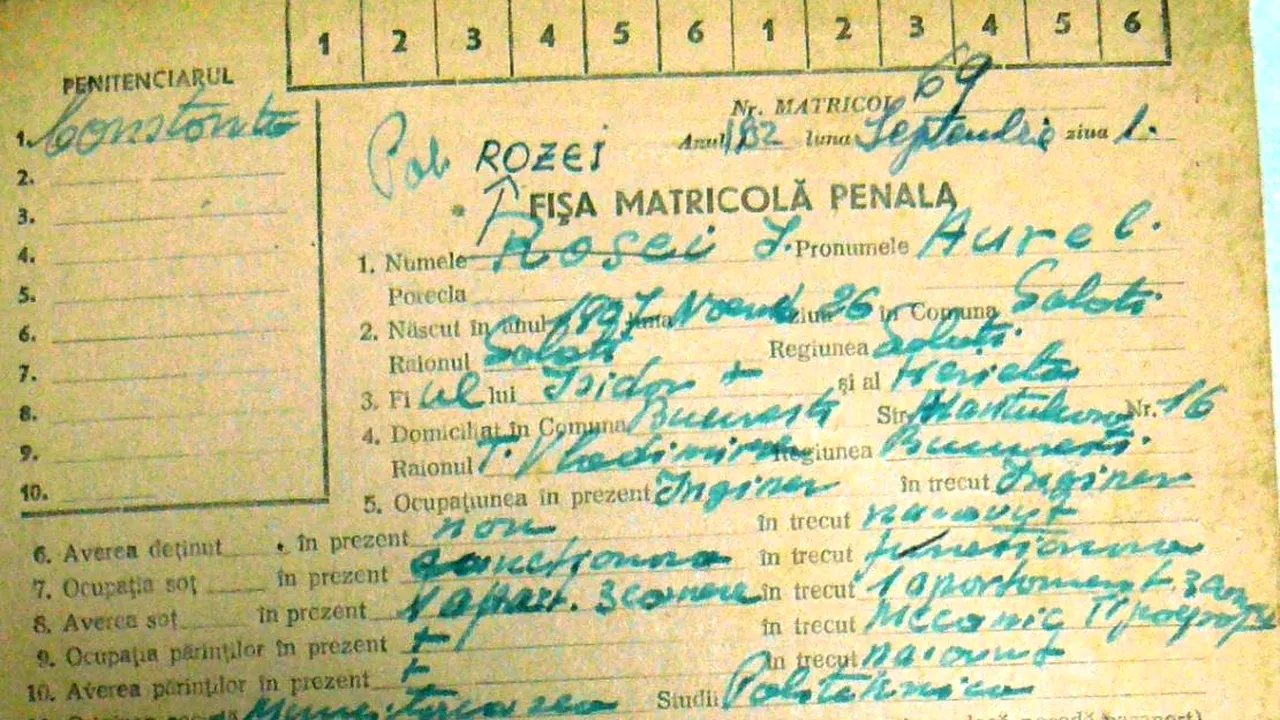 1 2 3 4 5 6 1 2 3 4 5 6
PENITENCIARUL
1. Constanta
2.
3.
4.
5.
6.
7.
8.
9.
10.
Nr. MATRICOL 69
Anul luna Septembrie ziua 1.
ROZEI
FIȘA MATRICOLĂ PENALA
1. Numele Rosei I. Pronumele Aurel.
Porecla
2. Născut în anul 1897 luna Noemb ziua 26 în Comuna Galati
Raionul Galati Regiunea Galati.
3. Fi ul lui Isidor + și al
4. Domiciliat în Comuna Bucuresti Str. Nr. 16
Raionul T. Vladimirescu Regiunea Bucuresti.
5. Ocupațiunea în prezent Inginer în trecut Inginer
6. Averea deținut în prezent non în trecut
7. Ocupația soț în prezent functionara în trecut functionara
8. Averea soț în prezent 1 apart. 3 camere în trecut 1 apartament 3 cam
9. Ocupația părinților în prezent + în trecut Mecanic Tipograf
10. Averea părinților în prezent + în trecut
Studii Politehnica